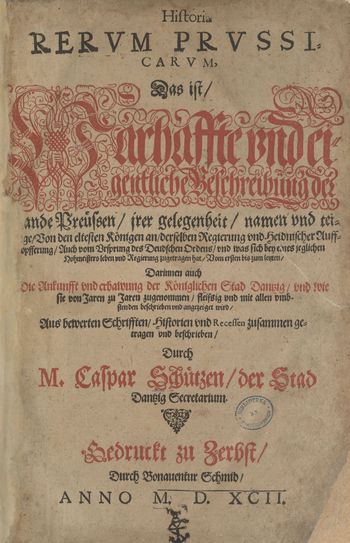 Historia
RERVM PRVSSI-
CARVM,
Das ist/
Warhaffte vnd ei-
gentliche Beschreibung der
Lande Preussen / jrer gelegenheit / namen vnd tei-
ge/Von den eltesten Königen an/derselben Regierung vnd Heidnischer Auff-
opfferung / Auch vom Vrsprung des Deutschen Ordens/ vnd was sich bey eines jeglichen
Hohmeisters leben vnd Regierung zugetragen hat / Vom ersten bis zum letzten/
Darinnen auch
Die Ankunfft vnd erbawung der Königlichen Stad Dantzig / vnd wie
sie von Jaren zu Jaren zugenommen / fleissig vnd mit allen vmb-
stenden beschrieben vnd angezeiget wird/
Aus bewerten Schrifften/ Historien vnd Recessen zusammen ge-
tragen vnd beschrieben/
Durch
M. Caspar Schützen / der Stad
Dantzig Secretarium.
Gedruckt zu Zerbst/
Durch Bonauentur Schmid/
ANNO M. D. XCII.